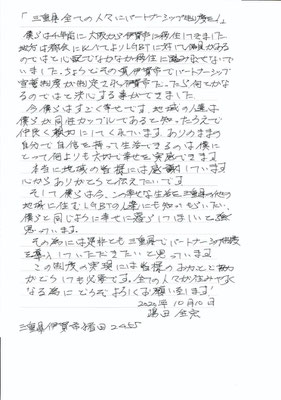 「三重県全ての人々にパートナーシップ制度を」
僕らは4年前に大阪から伊賀市に移住してきました
地方は都会に比べてよりLGBTに対して偏見がある
のではと心配でなかなか移住に踏み出せないで
いました。ちょうどその頃伊賀市でパートナーシップ
宣誓制度が制定され伊賀市だったら何とかな
るのではと決心する事ができました
今僕らはすごく幸せです。地域の人達は
僕らが同性カップルであると知ったうえで
仲良く親切にしてくれています。ありのままの
自分で自信を持って生活できるのは僕に
とって何よりも大切で幸せを実感できます
本当に地域の皆様には感謝しています
心からありがとうと伝えたいです
そして僕らは今、この幸せな生活を三重県の他の
地域に住むLGBTの人達にも知ってもらいたい、
僕らと同じように幸せに暮らしてほしいと強く
思っています。
その為には是非とも三重県でパートナーシップ制度
を導入していただきたいと思っています
この制度の実現には皆様のお力とご協力
がどうしても必要です。全ての人々が住みやすく
なる為にどうぞよろしくお願い致します!
2020年10月10日
嶋田全宏
三重県伊賀市猪田2455